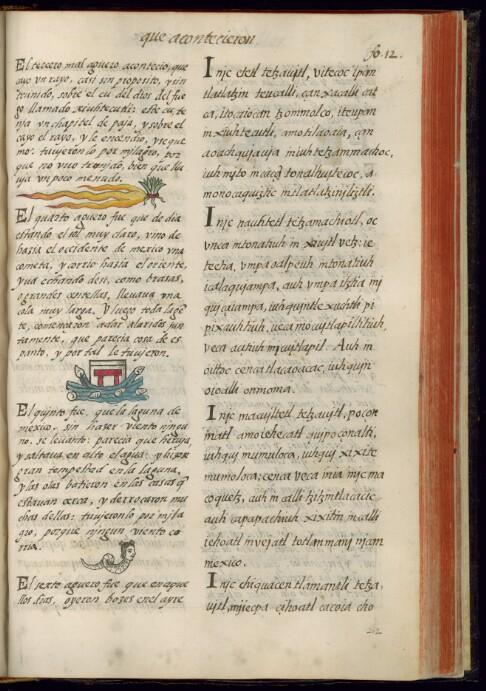 que acontecieron
fo. 12.
El tercero mal aguero acontecio, que
cayo vn rayo, casi sin proposito, y sin
trunido, sobre el cu del dios del fue
go llamado xiuhtecutli: este cu, te
nja vn chapitel de paja, y sobre el
cayo el rayo, y le encendio, y se que
mo: tuujeronlo por milagro, por
que no vuo trunjdo, bien que llu
uja vn poco menudo.
El quarto aguero fue que de dia
estando el sol muy claro, vino de
hazia el occidente de mexico vna
cometa, y corrio hasta el oriente,
y ua echando desi, como brasas,
o grandes centellas, lleuaua vna
cola muy larga. Y luego toda la gē
te, comēnzaron adar alaridos jun
tamente, que parecia cosa de es
panto, y por tal lo tuujeron.
El quinto fue, que la laguna de
mexico, sin hazer viento ningu
no, se leuanto: parecia que heruja,
y saltaua en alto el agua: y hizose
gran tempestad en la laguna,
y las olas batieron en las casas q̄
estauan cerca, y derrocaron mu
chas dellas: tuujeronlo por mila
gro, porque ningun viento co
rria.
El sexto aguero fue que en aque
llos dias, oyeron bozes en el ayre
Injc etetl tetzaujtl, vitecoc ipan
tlatlatzin teucalli, çan xacalli cat
ca, itocaiocan tzommolco, iteupan
in xiuhtecutli, amo tlaoaia, çan
aoachqujauja in iuh tetzammachoc,
iuh mjto in çaçan tonalhujtecoc, a
mono caquiztic in tlatlatzinjliztli.
Injc nauhtetl tetzamachiotl, oc
vnca in tonatiuh in xiujtl vetz: ie
teetia, vmpa oalpeuh in tonatiuh
icalaqujampa, auh vmpa itztia in
qujçaiampa, iuhqujn tlexuchtli pi
pixauhtiuh, veca mocujtlapiltitiuh,
veca actiuh in jcujtlapil. Auh in
oittoc cenca tlacaoacac, iuhqujn
oioalli onmoma.
Injc macujltetl tetzaujtl, poçon
in atl amo iehecatl qujpoçonalti,
iuhquj mumoloca, iuhquj xixite
mumoloca: cenca veca in ia injc ma
coquetz, auh in calli tzitzintlā cacic
auh capapachiuh xixitin in calli
iehoatl in vej atl totlan manj njcan
mexico.
Injc chiquacentlamantli tetza
ujtl, mjiecpa cihoatl cacoia cho